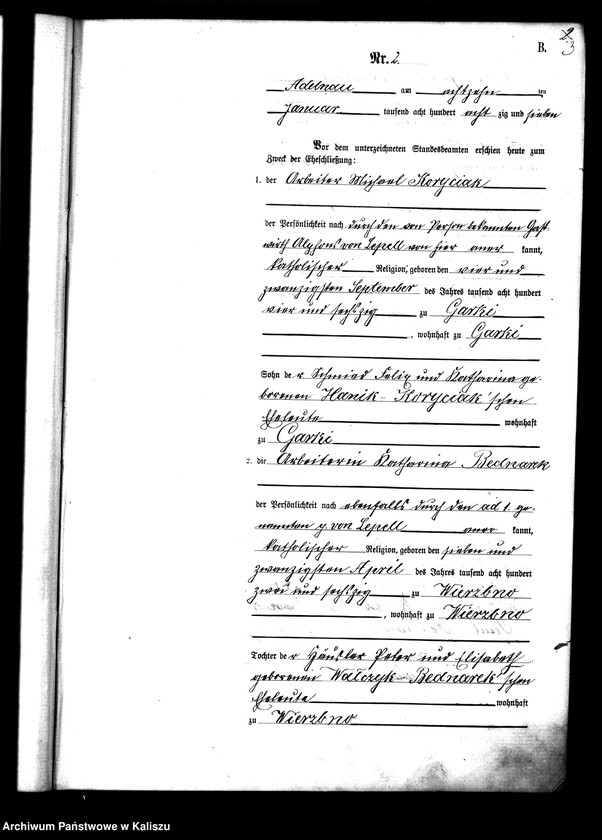 B.
3
Nr. 2.
Adelnau am achtzehn ten
Januar tausend acht hundert acht zig und sieben
Vor dem unterzeichneten Standesbeamten erschien heute zum
Zweck der Eheschließung:
1. der Arbeiter Michael Koryciak
der Persönlichkeit nach durch den von Person bekannten Gast
wirth Alphons von Lepell von hier aner kannt,
katholischer Religion, geboren den vier und
zwanzigsten September des Jahres tausend acht hundert
vier und sechszig zu Garki
, wohnhaft zu Garki
Sohn de r Schmied Felix und Katharina ge-
borenen Hanik-Koryciak'schen
Eheleute wohnhaft
zu Garki
2. die Arbeiterin Katharina Bednarek
der Persönlichkeit nach ebenfalls durch den ad 1. ge-
nannten p. von Lepell aner kannt,
katholischer Religion, geboren den sieben und
zwanzigsten April des Jahres tausend acht hundert
zwei und sechszig zu Wierzbno
, wohnhaft zu Wierzbno
Tochter de r Häusler Peter und Elisabeth
geborenen Walczyk-Bednarek'schen
Eheleute wohnhaft
zu Wierzbno
Archiwum Państwowe w Kaliszu